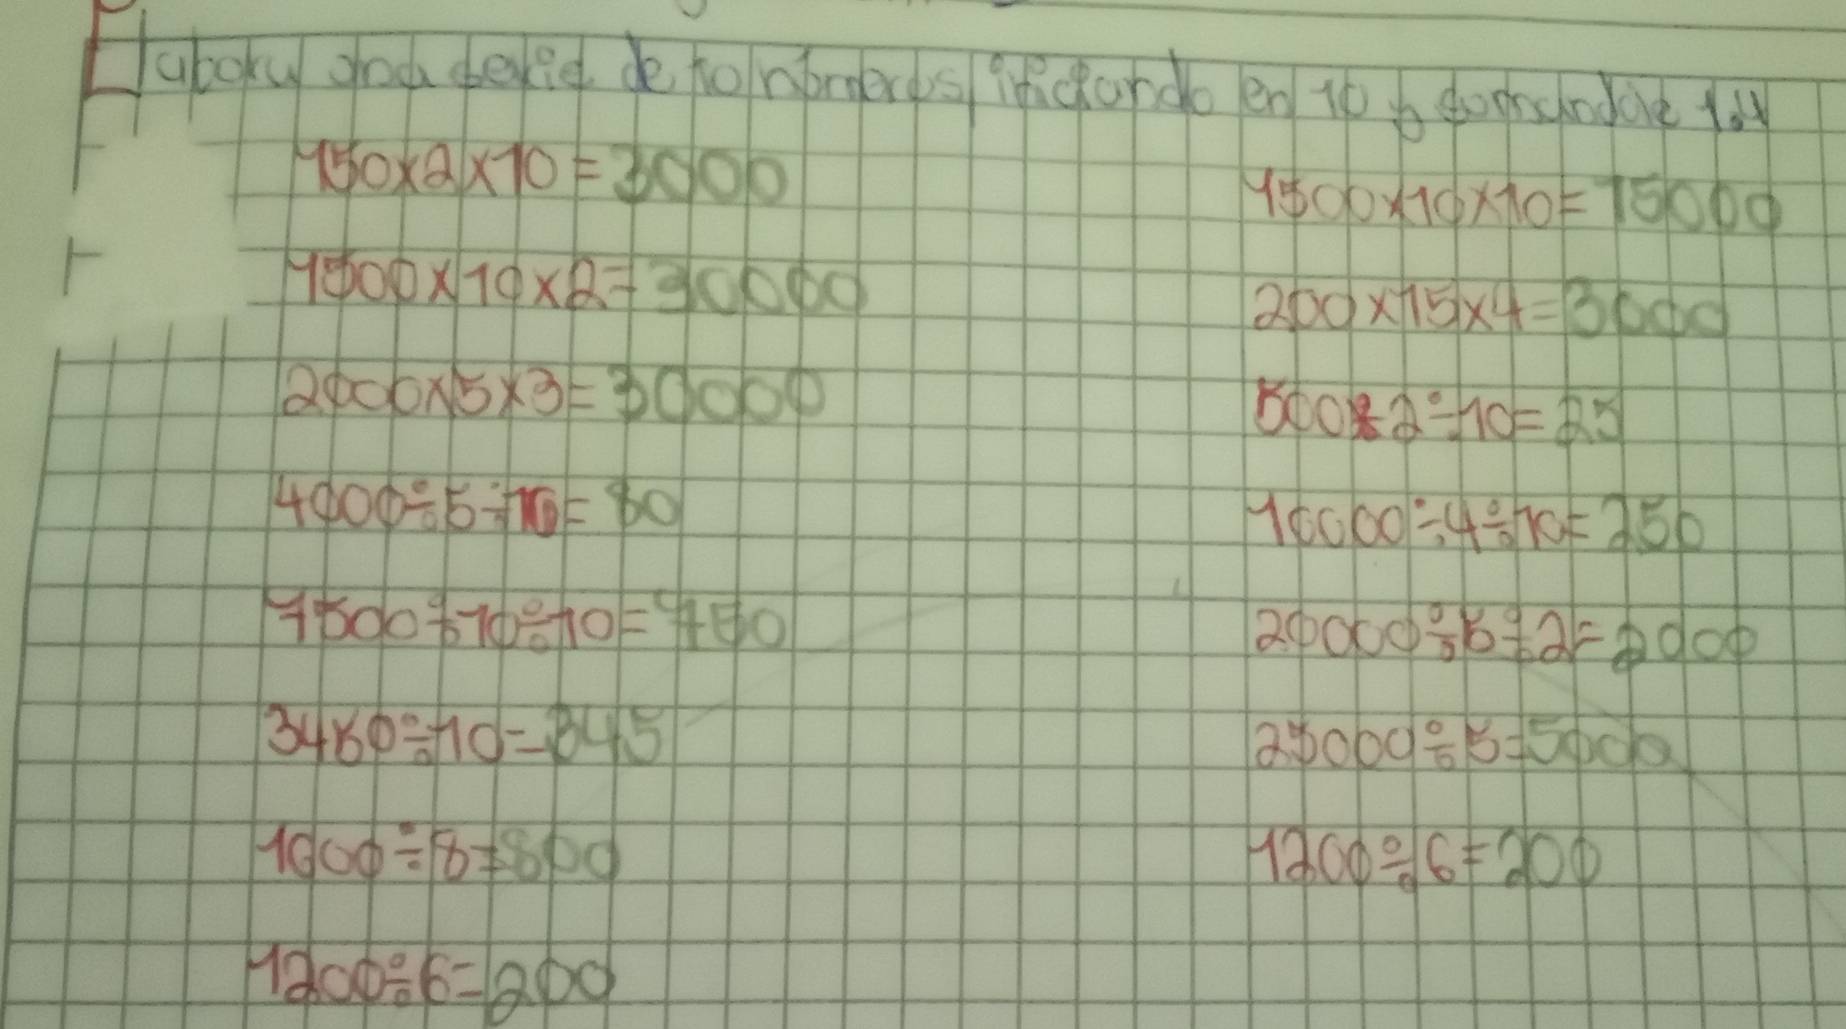 Elabora una serie de 10 números iniciando en 10 y sumandole 1.4
150x2x10=3000
1500x10x10=15000
1500x10x2=30000
200x15x4=3000
2000x5x3=30000
500÷2÷10=25
4000÷5÷10=80
10000÷4÷10=250
7500÷10÷10=750
20000÷5÷2=2000
3450÷10=345
25000÷5=5000
1000÷8=800
1200÷6=200
1200÷6=200